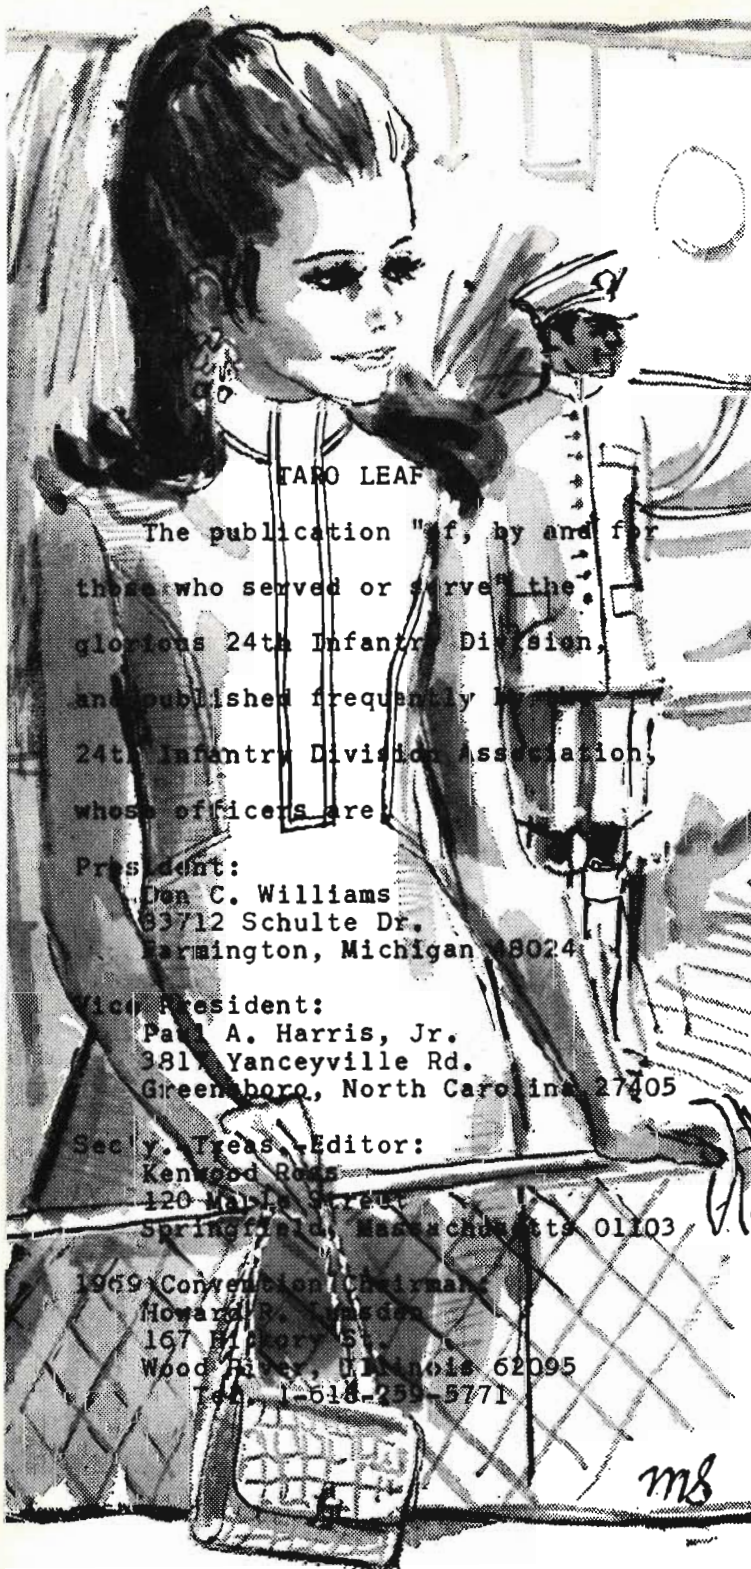 TARO LEAF
The publication "of, by and for
those who served or serve" the
glorious 24th Infantry Division,
and published frequently by the
24th Infantry Division Association,
whose officers are:
President:
Don C. Williams
33712 Schulte Dr.
Farmington, Michigan 48024
Vice President:
Paul A. Harris, Jr.
3817 Yanceyville Rd.
Greensboro, North Carolina 27405
Sec'y. Treas.-Editor:
Kenwood Ross
120 Maple Street
Springfield, Massachusetts 01103
1969 Convention Chairman:
Howard R. Lumsden
167 Hickory St.
Wood River, Illinois 62095
Tel. 1-618-259-5771
MS